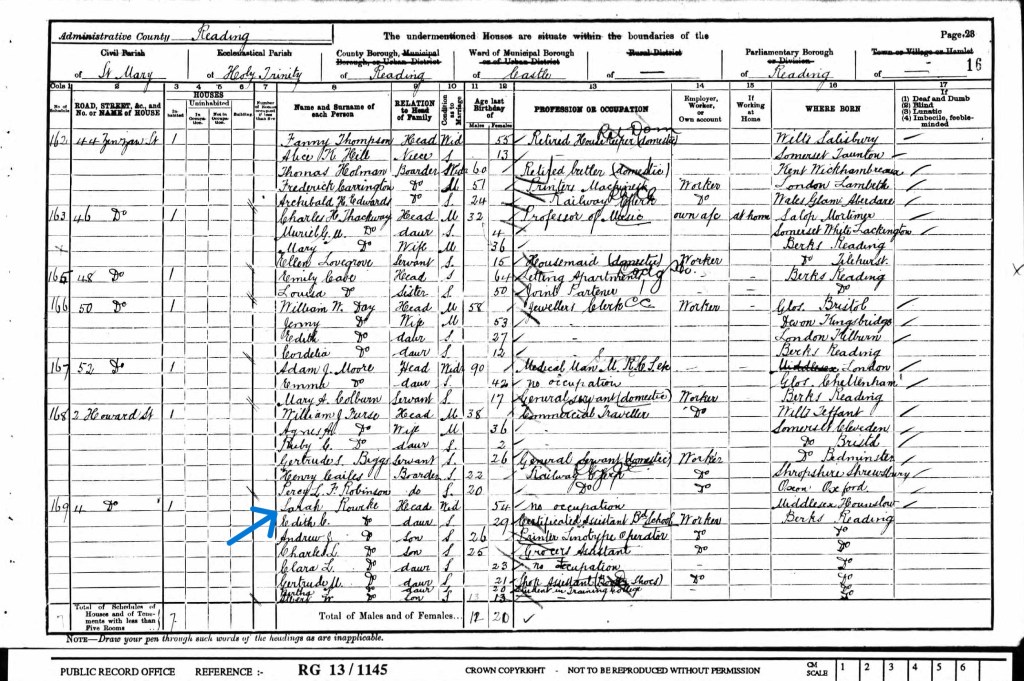 Administrative County Reading The undermentioned Houses are situate within the boundaries of the Page 28
Civil Parish Ecclesiastical Parish County Borough, Municipal Borough, or Urban District Ward of Municipal Borough or of Urban District Rural District Parliamentary Borough or Division Town or Village or Hamlet
of St Mary of Holy Trinity of Reading of Castle of — of Reading of — 16
Cols 1 2 3 4 5 6 7 8 9 10 11 12 13 14 15 16 17
No. of Schedule ROAD, STREET, &c., and No. or NAME of HOUSE HOUSES In- habited Uninhabited In Occupation Not in Occupation Building Name and Surname of each Person RELATION to Head of Family Condition as to Marriage Age last Birthday of Males Females PROFESSION OR OCCUPATION Employer, Worker, or Own account If Working at Home WHERE BORN If (1) Deaf and Dumb (2) Blind (3) Lunatic (4) Imbecile, feeble-minded
162 44 Zinzan St 1 Fanny Thompson Head Wid 55 Retired Housekeeper (domestic) Ret Dom Wilts Salisbury
Alice K. Hill Niece S 13 Somerset Taunton
Thomas Holman Boarder Widr 60 Retired butler (domestic) Kent Wickhambreaux
Frederick Carrington Do M 51 Printers Machinist Worker London Lambeth
Archibald H. Edwards Do S 24 Railway Clerk Do Wales Glam Aberdare
163 46 Do 1 Charles H. Thackway Head M 32 Professor of Music own a/c at home Salop Mortimer
Muriel G. M. Do daur S 4 Somerset White Lackington
Mary Do Wife M 36 Berks Reading
Ellen Lovegrove Servant S 15 Housemaid (domestic) Worker Do Tilehurst
165 48 Do 1 Emily Cave Head S 64 Letting Apartments Berks Reading
Louisa Do Sister S 50 Joint Partener Do
166 50 Do 1 William W. Day Head M 58 Jewellers Clerk CC Worker Glos. Bristol
Jenny Do Wife M 53 Devon Kingsbridge
Edith Do daur S 27 London Kilburn
Cordelia Do daur S 12 Berks Reading
167 52 Do 1 Adam J. Moore Head Widr 90 Medical Man Middlesex London
Emma Do daur S 42 no occupation Glos. Cheltenham
Mary A. Colburn Servant S 17 General servant (domestic) Worker Berks Reading
168 2 Howard St 1 William J. Furse Head M 38 Commercial Traveller Do Wilts Teffant
Agnes A. Do Wife M 36 Somerset Clevedon
Ruby C. Do daur S 2 Do Bristol
Gertrude S. Biggs Servant S 26 General Servant (domestic) Worker Do Bedminster
Henry Cailes Boarder S 22 Railway Clerk Do Shropshire Shrewsbury
Percy L. F. Robinson do S 20 Do Do Oxon Oxford
169 4 Do 1 Sarah Rourke Head Wid 54 no occupation Middlesex Hounslow
Edith C. Do daur S 29 Certificated Assistant Bd School Worker Berks Reading
Andrew J. Do son S 26 Printer Linotype Operator Do Do
Charles L. Do son S 25 Grocers Assistant Do Do
Clara L. Do daur S 23 no occupation Do
Gertrude M. Do daur S 21 Shop Assistant (Boots Shoes) Do Do
Bertha Do daur S 20 Student in Training College Do
Albert W. Do son S 13 Do
7 Total of Schedules of Houses and of Tenements with less than Five Rooms 7 Total of Males and of Females... 12 20
NOTE—Draw your pen through such words of the headings as are inapplicable.
PUBLIC RECORD OFFICE REFERENCE :- RG 13/1145 CROWN COPYRIGHT - NOT TO BE REPRODUCED WITHOUT PERMISSION CM SCALE 1 2 3 4 5 6